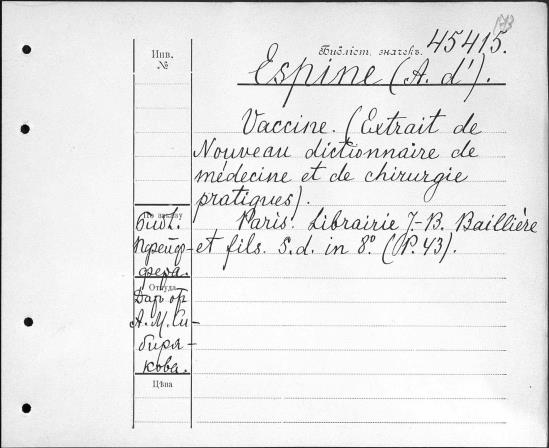 173
Инв.
№
Библіот. значекъ. 45415.
Espine (A. d').
Vaccine. (Extrait de
Nouveau dictionnaire de
médecine et de chirurgie
pratiques).
Paris. Librairie J.-B. Baillière
et fils. S.d. in 8º. (P. 43).
Библ.
Пфейф-
фера.
Откуда
Даръ от
А. М. Си-
биря-
кова.
Цѣна